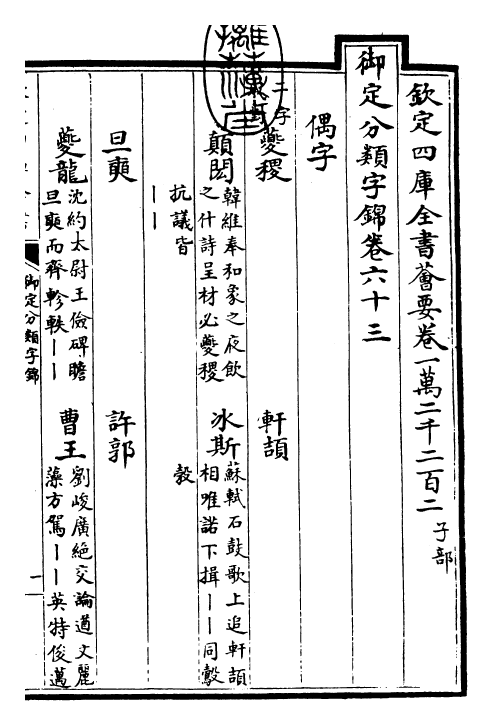 欽定四庫全書薈要卷一萬二千二百二 子部
御定分類字錦卷六十三
偶字
二字
夔稷 軒頡
顛閎 韓維奉和象之夜飲
之什詩呈材必夔稷
抗議皆
——
冰斯 蘇軾石鼓歌上追軒頡
相唯諾下揖——同鷇
㝅
旦奭 許郭
夔龍 沈約太尉王儉碑瞻
旦奭而齊軫軼——
曹王 劉峻廣絶交論遒文麗
藻方駕——英特俊邁
御定分類字錦
一